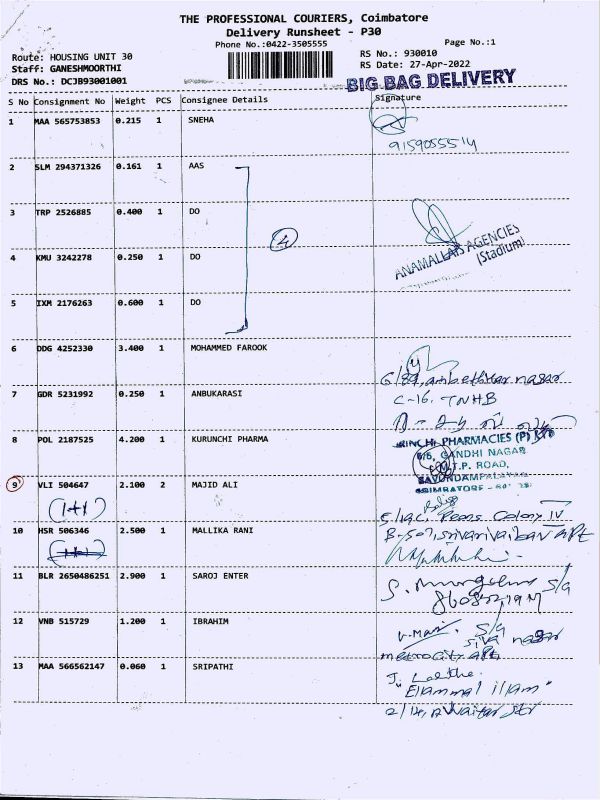 THE PROFESSIONAL COURIERS, Coimbatore
Delivery Runsheet - P30
Phone No.:0422-3505555
Page No.:1
Route: HOUSING UNIT 30
RS No.: 930010
Staff: GANESHMOORTHI
RS Date: 27-Apr-2022
DRS No.: DCJB93001001
BIG BAG DELIVERY
S No Consignment No Weight PCS Consignee Details Signature
1 MAA 565753853 0.215 1 SNEHA
9159055514
2 SLM 294371326 0.161 1 AAS
3 TRP 2526885 0.400 1 DO
4
ANAMALLAIS AGENCIES
(Stadium)
4 KMU 3242278 0.250 1 DO
5 IXM 2176263 0.600 1 DO
6 DDG 4252330 3.400 1 MOHAMMED FAROOK
nagar
7 GDR 5231992 0.250 1 ANBUKARASI
C-16. TNHB
8 POL 2187525 4.200 1 KURUNCHI PHARMA
PHARMACIES (P)
GANDHI NAGAR
M.T.P. ROAD,
9 VLI 504647 2.100 2 MAJID ALI
(1+1)
Colony IV
10 HSR 506346 2.500 1 MALLIKA RANI
11 BLR 2650486251 2.900 1 SAROJ ENTER
S.
12 VNB 515729 1.200 1 IBRAHIM
V. Mani. S/G
siva nagar
metrocity apt
13 MAA 566562147 0.060 1 SRIPATHI
"Elammal illam"